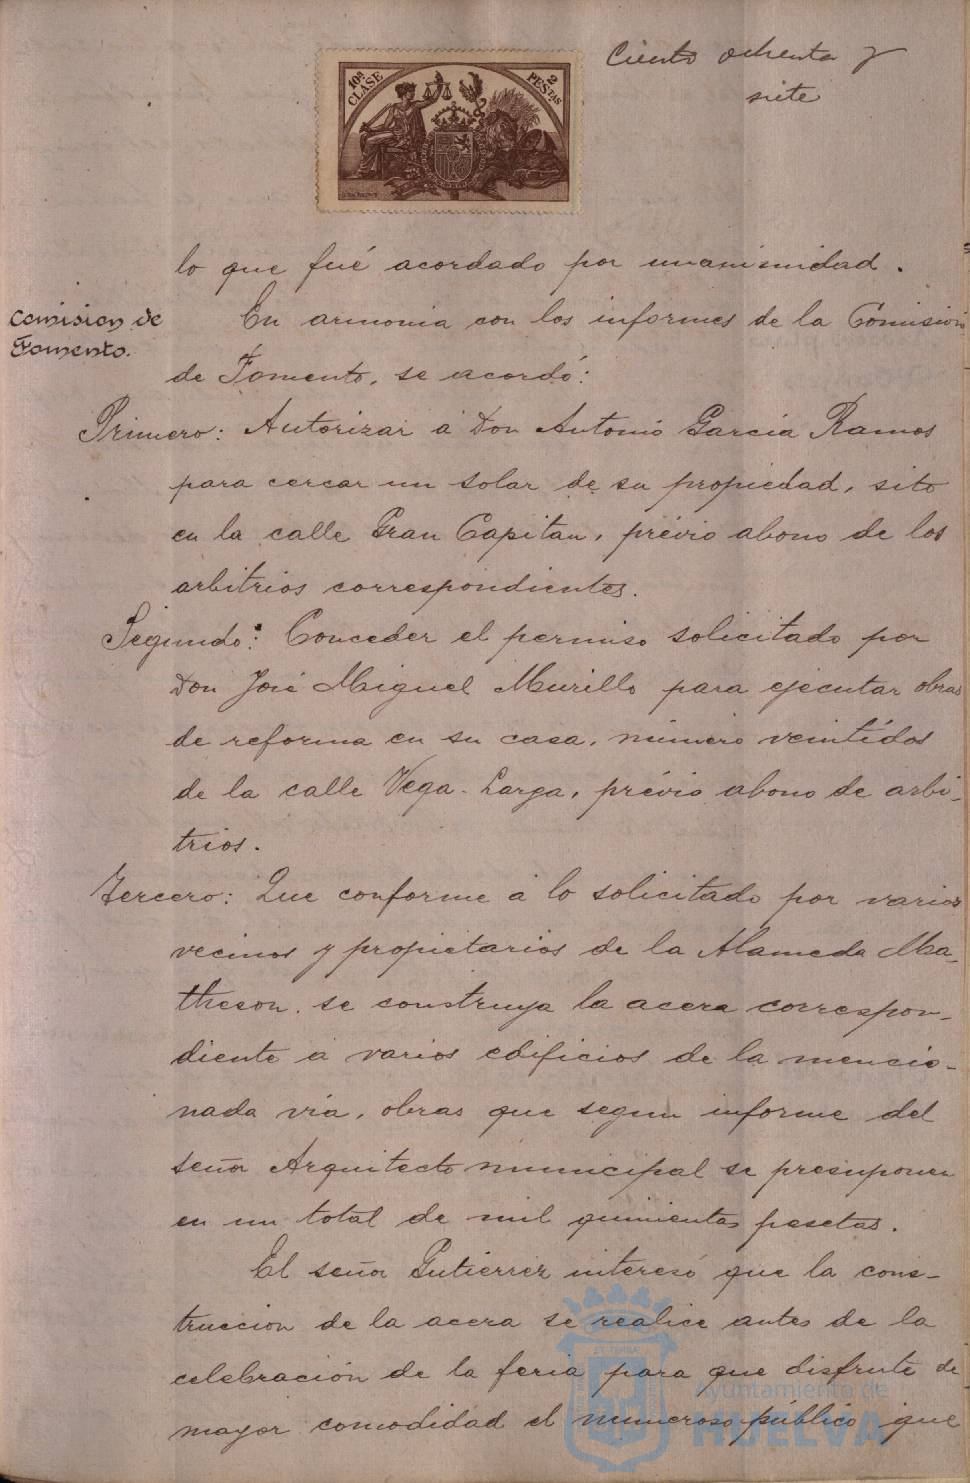 Ciento ochenta y
siete
10ª CLASE
2 PESTAS
lo que fué acordado por unanimidad.
Comision de
Fomento.
En armonia con los informes de la Comision
de Fomento, se acordó:
Primero: Autorizar á Don Antonio Garcia Ramos
para cercar un solar de su propiedad, sito
en la calle Gran Capitan, prévio abono de los
arbitrios correspondientes.
Segundo: Conceder el permiso solicitado por
Don José Miguel Murillo para ejecutar obras
de reforma en su casa, número veintidos
de la calle Vega-Larga, prévio abono de arbi-
trios.
Tercero: Que conforme á lo solicitado por varios
vecinos y propietarios de la Alameda Ma-
theson, se construya la acera correspon-
diente á varios edificios de la mencio-
nada via, obras que segun informe del
señor Arquitecto municipal se presuponen
en un total de mil quinientas pesetas.
El señor Gutierrez interesó que la cons-
truccion de la acera se realice antes de la
celebración de la feria para que disfrute de
mayor comodidad el numeroso público que
Ayuntamiento de
HUELVA